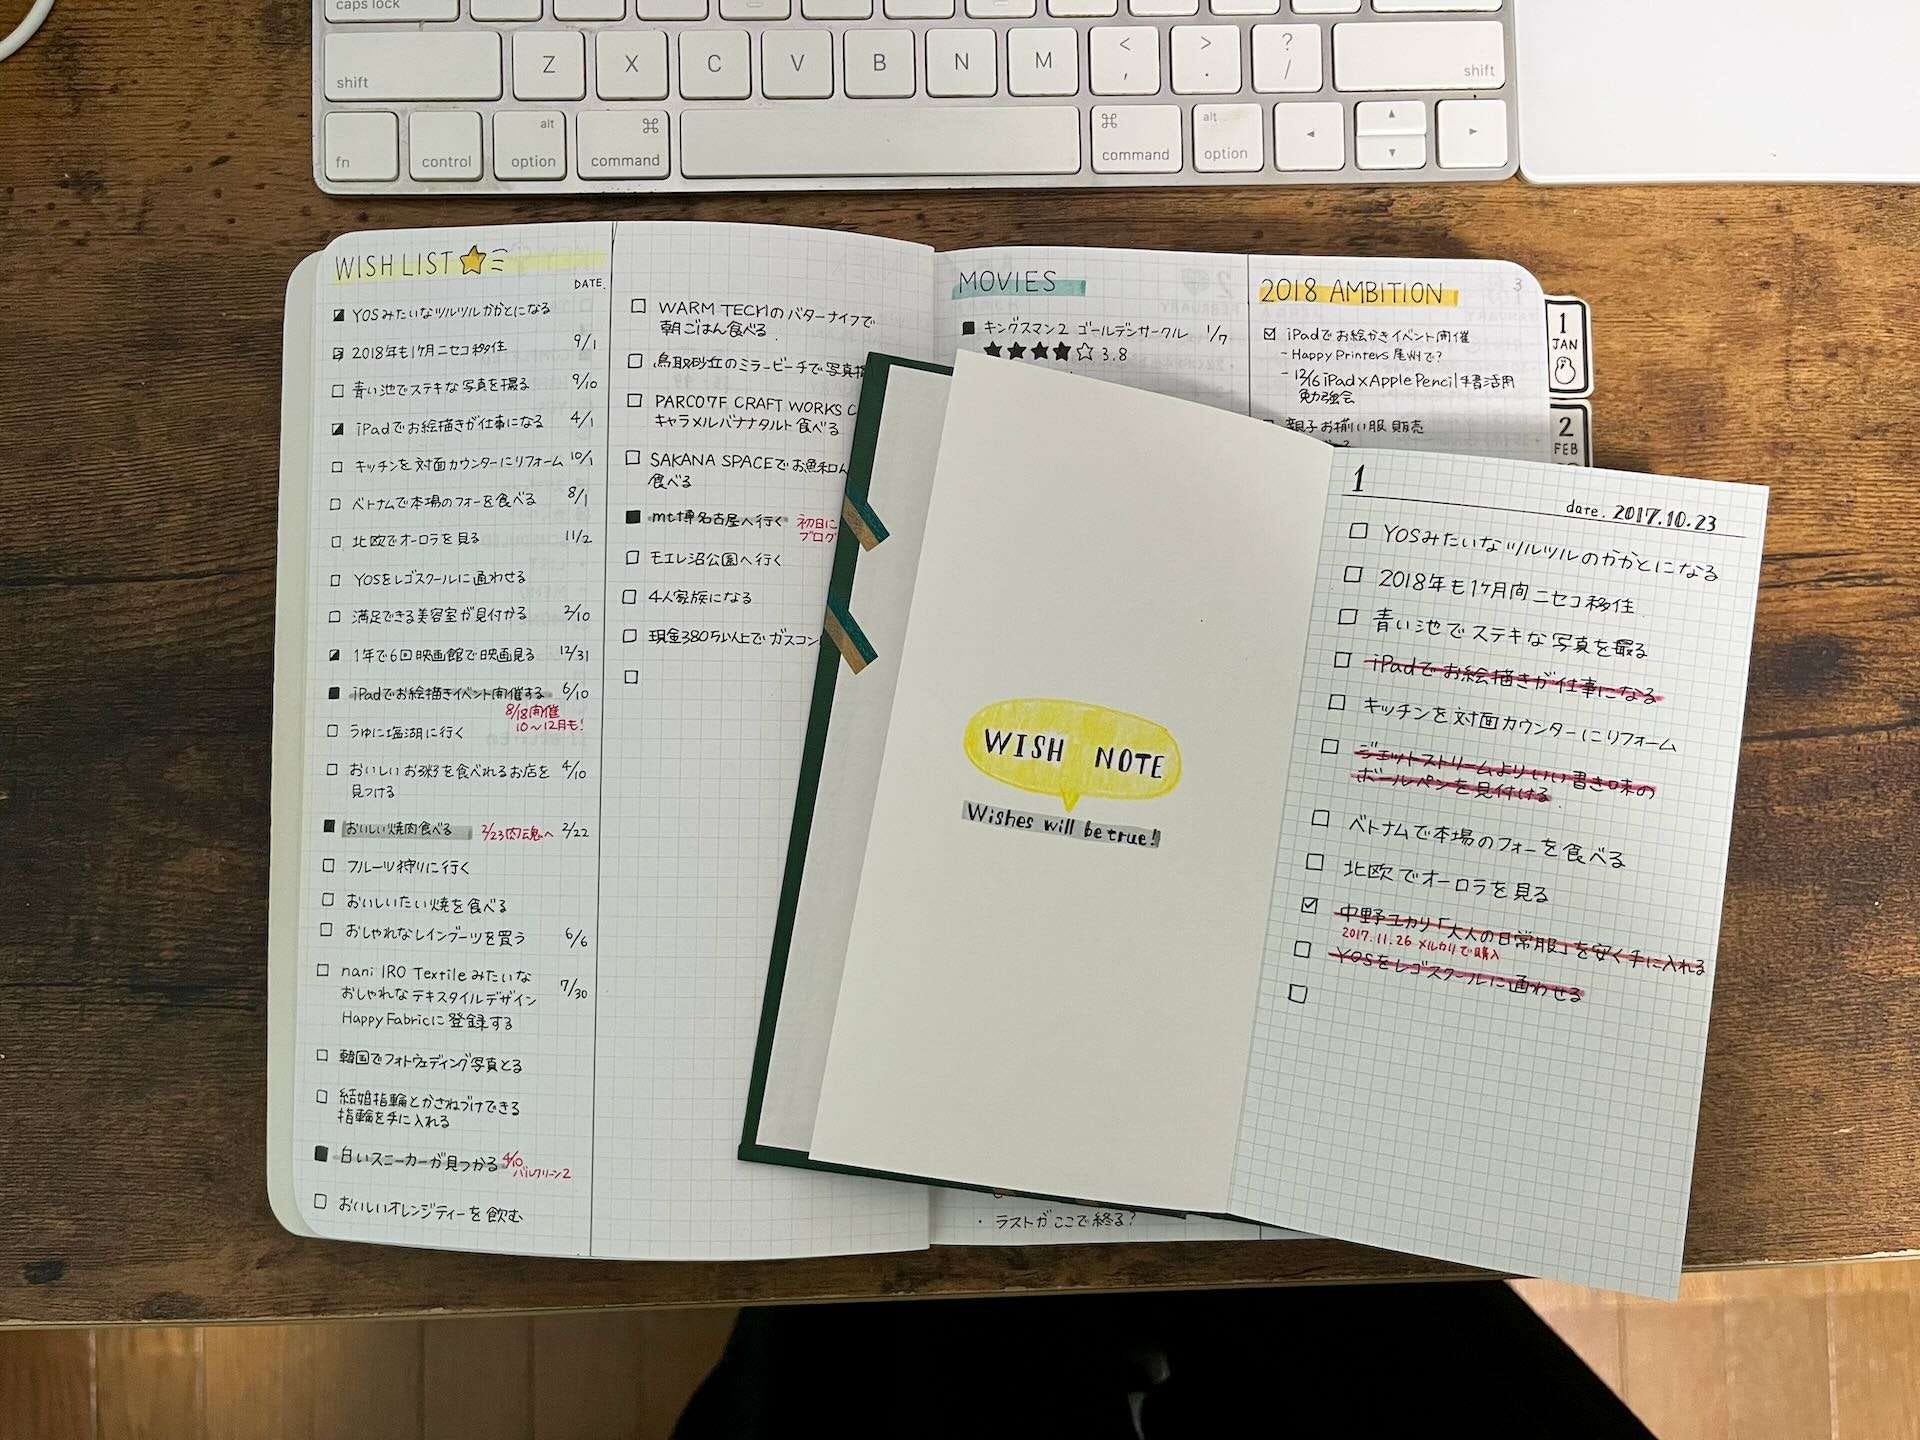 caps lock
shift
Z
X
C
V
B
N
M
<
,
>
.
?
/
shift
fn
control
alt
option
⌘
command
⌘
command
alt
option
◂
▴
▾
▸
WISH LIST
DATE.
YOSみたいなツルツルかかとになる
2018年も1ヶ月ニセコ移住 9/1
青い池でステキな写真を撮る 9/10
iPadでお絵描きが仕事になる 4/1
キッチンを対面カウンターにリフォーム 10/1
ベトナムで本場のフォーを食べる 8/1
北欧でオーロラを見る 11/2
YOSをレゴスクールに通わせる
満足できる美容室が見付かる 2/10
1年で6回映画館で映画見る 12/31
iPadでお絵描きイベント開催する 6/10
8/18開催
10〜12月も!
うゆに塩湖に行く
おいしいお粥を食べれるお店を 4/10
見つける
おいしい焼肉食べる 2/23肉魂へ 2/22
フルーツ狩りに行く
おいしいたい焼を食べる
おしゃれなレインブーツを買う 6/6
nani IRO Textileみたいな
おしゃれなテキスタイルデザイン 7/30
HappyFabricに登録する
韓国でフォトウェディング写真とる
結婚指輪とかさねづけできる
指輪を手に入れる
白いスニーカーが見つかる 4/10
バルクリーン2
おいしいオレンジティーを飲む
WARM TECHのバターナイフで
朝ごはん食べる
鳥取砂丘のミラービーチで写真
PARCO7F CRAFT WORKS C
キャラメルバナナタルト食べる
SAKANA SPACEでお魚
食べる
mt博名古屋へ行く 初日に
ブログ
モエレ沼公園へ行く
4人家族になる
現金380万以上でガスコン
MOVIES
キングスマン2 ゴールデンサークル 1/7
★★★★☆ 3.8
・ラストがここで終る?
2018 AMBITION
3
iPadでお絵かきイベント開催
- Happy Printers 尾州で?
- 12/16 iPad×ApplePencil手書活用
勉強会
親子お揃い服販売
1
JAN
2
FEB
WISH NOTE
Wishes will be true!
1
date. 2017.10.23
YOSみたいなツルツルのかかとになる
2018年も1ヶ月間ニセコ移住
青い池でステキな写真を撮る
iPadでお絵描きが仕事になる
キッチンを対面カウンターにリフォーム
ジェットストリームよりいい書き味の
ボールペンを見付ける
ベトナムで本場のフォーを食べる
北欧でオーロラを見る
中野ユカリ「大人の日常服」を安く手に入れる
2017.11.26 メルカリで購入
YOSをレゴスクールに通わせる